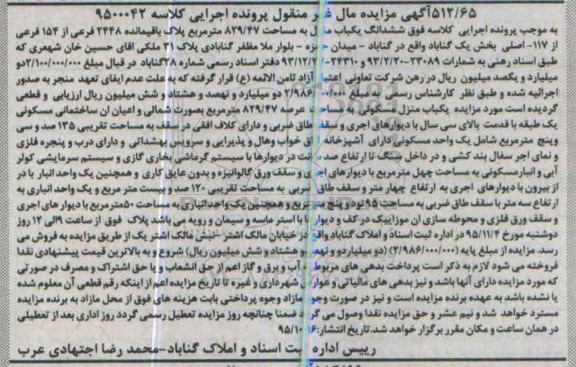 ۵۱۲/۶۵آگهی مزایده مال غیر منقول پرونده اجرایی کلاسه ۹۵۰۰۰۴۲
به موجب پرونده اجرایی کلاسه فوق ششدانگ یکباب به مساحت ۸۲۹/۴۷ مترمربع پلاک باقیمانده ۲۴۸ فرعی از ۱۵۴ فرعی
از ۱۱۷- اصلی بخش یک گناباد واقع در گناباد - میدان - بلوار ملا مظفر گنابادی پلاک ۳۱ ملکی اقای حسین خان شهمری که
طبق اسناد رهنی به شمارات ۲۳۰۸۹-۹۳/۲/۲۰ و ۲۴۳۱۰-۹۳/۱۲/۲ دفتر اسناد رسمی شماره ۲۸گناباد در قبال مبلغ ۲/۱۰۰/۰۰۰/۰۰۰دو
میلیارد و یکصد میلیون ریال در رهن شرکت تعاونی اعتبار آزاد ثامن الائمه (ع) قرار گرفته که به علت عدم ایفای تعهد منجر به صدور
اجرائیه شده و طبق نظر کارشناس رسمی به مبلغ ۲/۹۸۶/۰۰۰/۰۰۰ دو میلیارد و نهصد و هشتاد و شش میلیون ریال ارزیابی و قطعی
گردیده است مورد مزایده یکباب منزل مسکونی به مساحت عرصه ۸۲۹/۴۷ مترمربع بصورت شمالی و اعیان ان ساختمانی مسکونی
یک طبقه با قدمت بالای سی سال با دیوارهای اجری و سقف طاق ضربی و دارای کلاف افقی در سقف به مساحت تقریبی ۱۳۵ صد و سی
وپنج مترمربع شامل یک واحد مسکونی دارای آشپزخانه اتاق خواب وهال و پذیرایی و سرویس بهشداتی و دارای درب و پنجره فلزی
و نمای اجر سفال بند کشی و در داخل سنگ تا ارتفاع صد سانت در دیوارها با سیستم گرمایشی بخاری گازی و سیستم سرمایشی کولر
آبی و انبارمسکونی به مساحت چهل مترمربع با دیوارهای اجری و سقف ورق گالوانیزه و بدون عایق کاری و همچنین یک واحد انبار با در
از بیرون با دیوارهای اجری به ارتفاع چهار متر و سقف طاق ضربی به مساحت تقریبی ۱۲۰ صد و بیست متر مربع و یک واحد انباری به
ارتفاع سه متر با سقف طاق ضربی به مساحت ۹۵ نود و پنج مترمربع و همچنین یک واحد انباری به مساحت ۵۰مترمربع با دیوار های اجری
و سقف ورق فلزی و محوطه سازی ان موزاییک در کف و دیوار با استر ماسه و سیمان و رویه می باشد پلاک فوق از ساعت ۹الی ۱۲ روز
دوشنبه مورخ ۹۵/۱۱/۴ در اداره ثبت اسناد و املاک گناباد واقع در خیابان مالک اشتر -نبش مالک اشتر یک از طریق مزایده به فروش می
رسد. مزایده از مبلغ پایه (۲/۹۸۶/۰۰۰/۰۰۰) (دو میلیارد و نهصد و هشتاد و شش میلیون ریال) شروع و به بالاترین قیمت پیشنهادی نقدا
فروخته می شود لازم به ذکر است پرداخت بدهی های مربوط به آب و برق و گاز اعم از حق انشعاب و یا حق اشتراک و مصرف در صورتی
که مورد مزایده دارای آنها باشد و نیز بدهی های مالیاتی و عوارض شهرداری و غیره تا تاریخ مزایده اعم از اینکه رقم قطعی آن معلوم شده
یا نشده باشد به عهده برنده مزایده است و نیز در صورت وجود مازاد وجوه پرداختی بابت هزینه های فوق از محل مازاد به برنده مزایده
مسترد خواهد شد و نیم عشر و حق مزایده نقدا وصول می گردد ضمنا چنانچه روز مزایده تعطیل رسمی گردد روز اداری بعد از تعطیلی
در همان ساعت و مکان مقرر برگزار خواهد شد. تاریخ انتشار: ۹۵/۱۰
رییس اداره ثبت اسناد و املاک گناباد-محمد رضا اجتهادی عرب